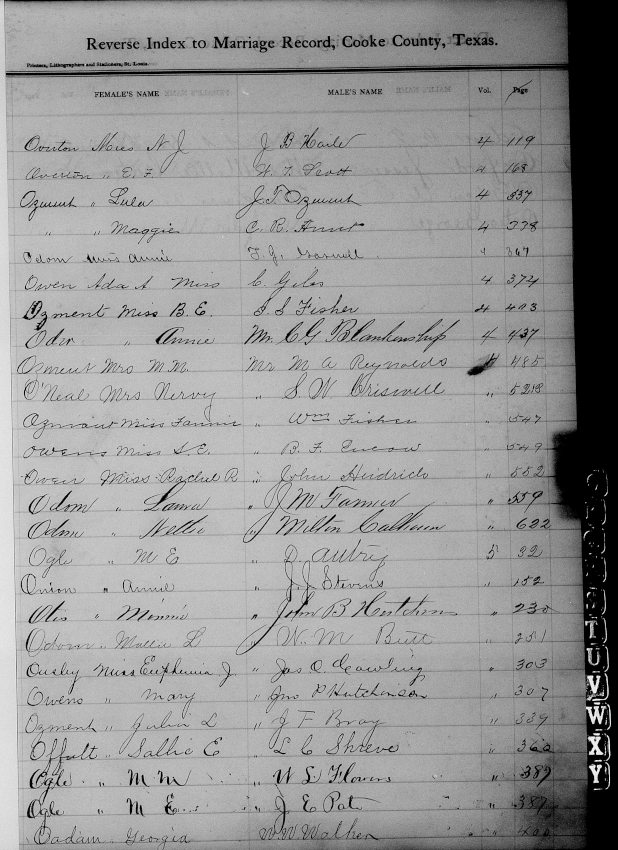 Reverse Index to Marriage Record, Cooke County, Texas.
Printers, Lithographers and Stationers, St. Louis.
FEMALE'S NAME MALE'S NAME Vol. Page
Overton Miss N J J B Haile 4 119
Overton " E. F 4 168
Ozment " Lula J. T. Ozment 4 337
" " Maggie C. R. Hunt 4 338
Odom Miss Annie T. J. 4 367
Owen Ada A Miss C. Giles 4 374
Ozment Miss B. E. S. S Fisher 4 403
Oder " Annie Mr. C G Blankenship 4 437
Ozment Mrs M. M. Mr M A Reynolds 4 485
O'Neal Mrs Nervy " S. W Criswell " 528
Ozment Miss Fannie " Wm Fisher " 547
Owens Miss S. E. " B. F. " 549
Owen Miss Rachel R " John Heidrich " 552
Odom " Laura " J M Farmer " 559
Odom " Nellie " Milton Calhoun " 622
Ogle " M E " D. Autry 5 32
Onion " Annie " J. J. Stevens " 152
Otis " Minnie " John B Hutchins " 230
Odom " Mollie L " W. M Butt " 251
Ousley Miss Euphemia J. " Jas C. Cowling " 303
Owens " Mary " Jno P Hutchinson " 307
Ozment " Julia L " J F Bray " 339
Offutt " Sallie E " L C Shreve " 360
Ogle " M M " W L Flowers " 387
Ogle " M E " J E Pate " 387
Oadam " Georgia W W Walker " 400
T
U
V
W
X
Y